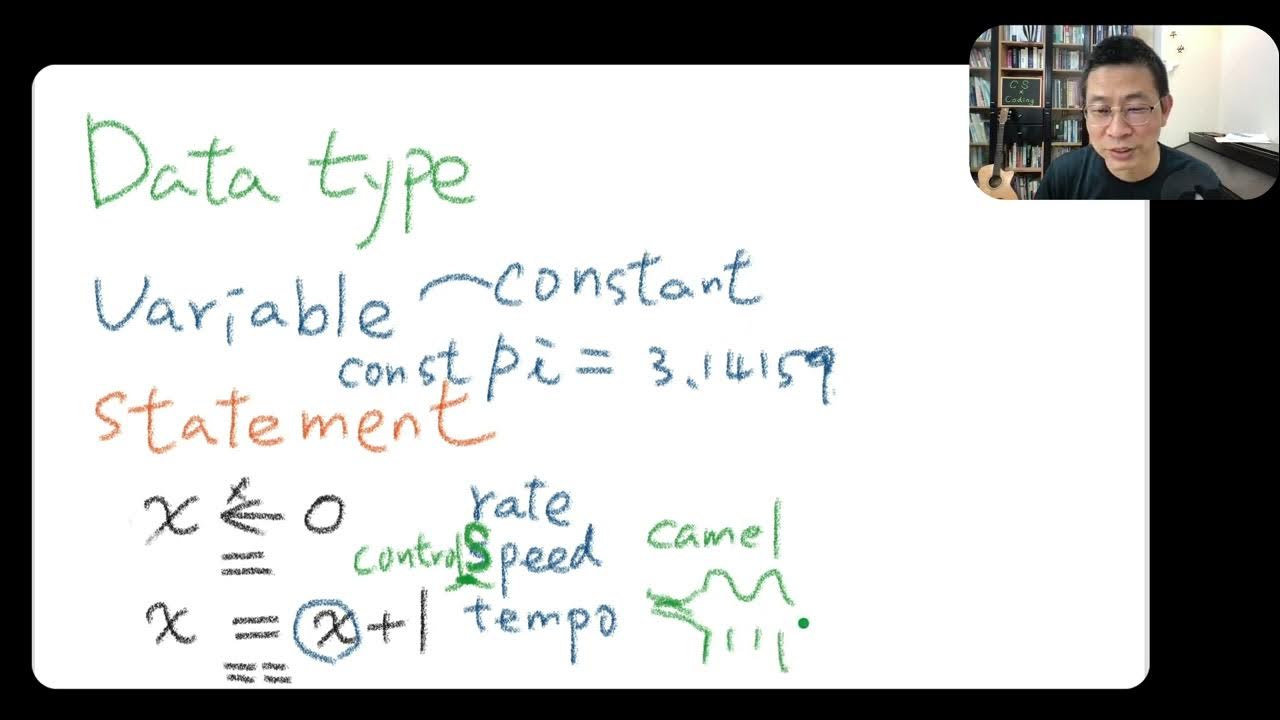 Data type
Variable constant
const pi = 3.14159
Statement
x ← 0
rate
controlSpeed
x = x + 1
tempo
camel
CS
x
Coding
平
安